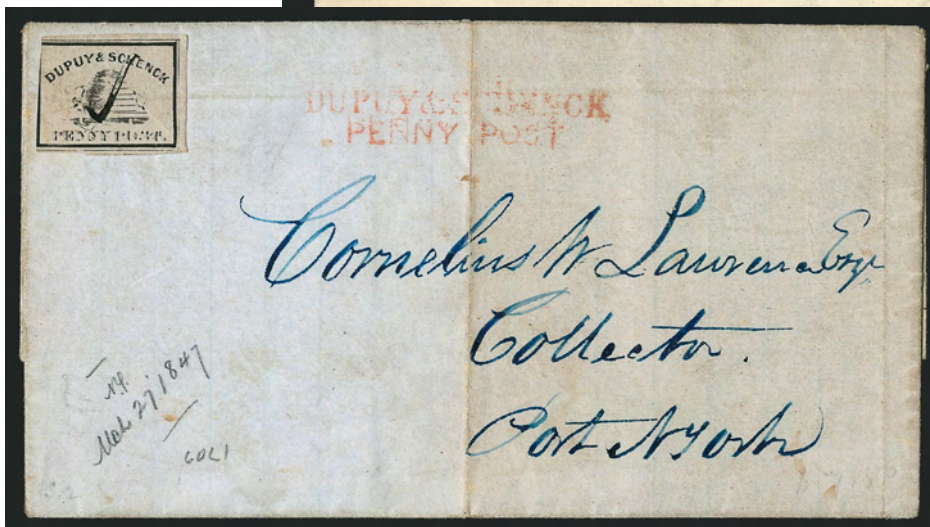 DUPUY & SCHENCK
PENNY POST.
DUPUY & SCHENCK
PENNY POST
Cornelius W Lawrence Esqr
Collector.
Port NYork
N.Y.
Mch 27, 1847
60L1